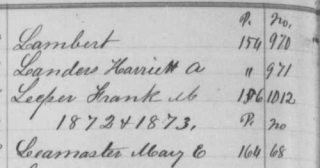 P. No.
Lambert 154 970
Landers Harriett A " 971
Leeper Frank M 156 1012
1872 & 1873. P. No
Leamaster Mary E 164 68